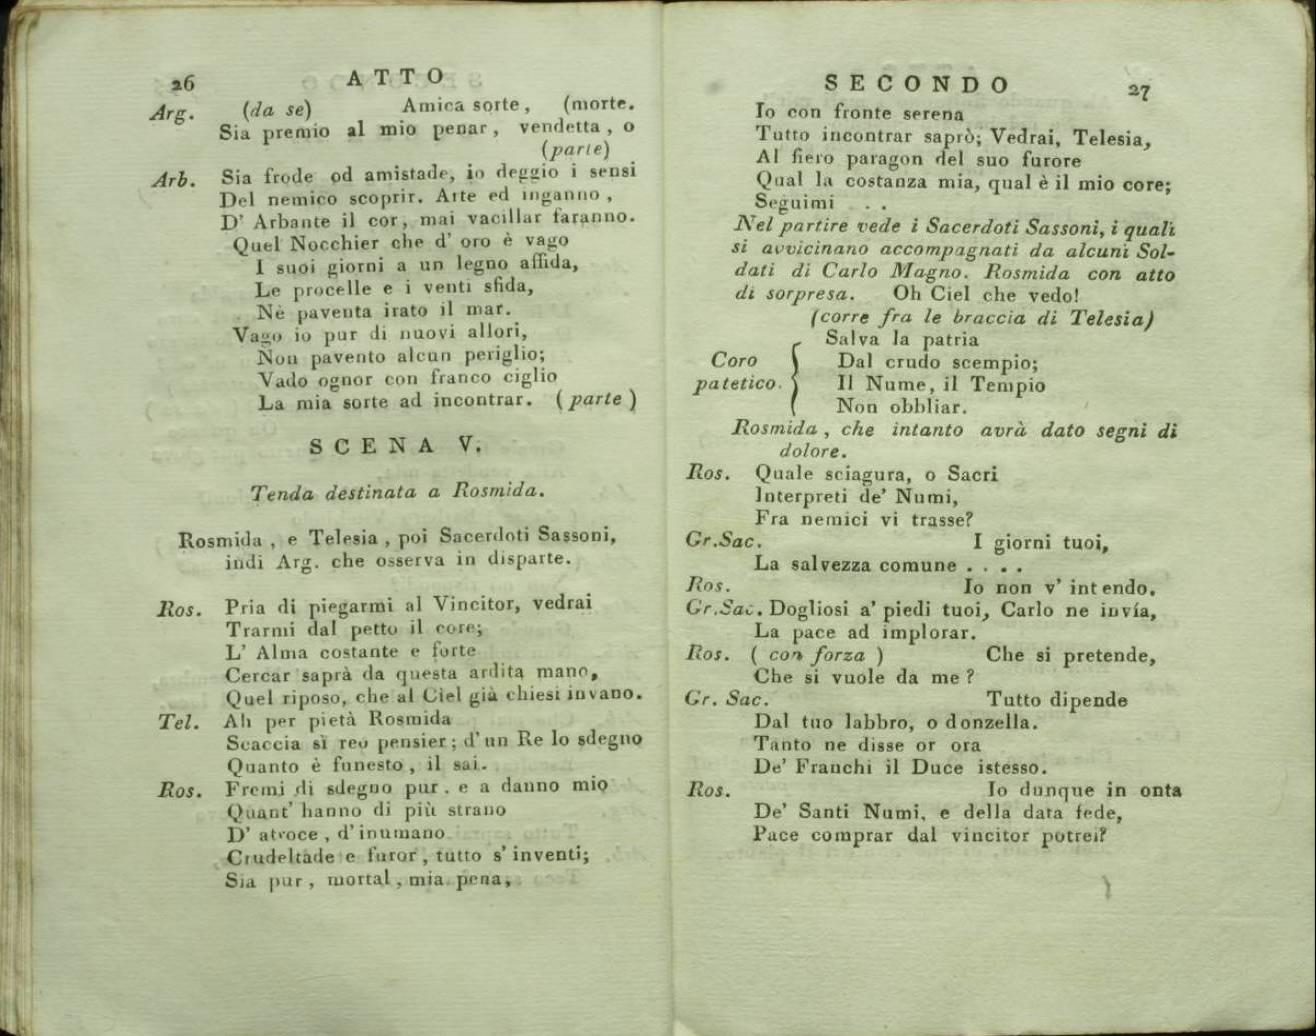 26 ATTO
Arg. (da se) Amica sorte, (morte.
Sia premio al mio penar, vendetta, o
(parte)
Arb. Sia frode od amistade, io deggio i sensi
Del nemico scoprir. Arte ed inganno,
D' Arbante il cor, mai vacillar faranno.
Quel Nocchier che d' oro è vago
I suoi giorni a un legno affida,
Le procelle e i venti sfida,
Nè paventa irato il mar.
Vago io pur di nuovi allori,
Non pavento alcun periglio;
Vado ognor con franco ciglio
La mia sorte ad incontrar. (parte)
SCENA V.
Tenda destinata a Rosmida.
Rosmida, e Telesia, poi Sacerdoti Sassoni,
indi Arg. che osserva in disparte.
Ros. Pria di piegarmi al Vincitor, vedrai
Trarmi dal petto il core;
L' Alma costante e forte
Cercar saprà da questa ardita mano,
Quel riposo, che al Ciel già chiesi invano.
Tel. Ah per pietà Rosmida
Scaccia sì reo pensier; d' un Re lo sdegno
Quanto è funesto, il sai.
Ros. Fremi di sdegno pur. e a danno mio
Quant' hanno di più strano
D' atroce, d' inumano
Crudeltade e furor, tutto s' inventi;
Sia pur, mortal, mia pena,
SECONDO 27
Io con fronte serena
Tutto incontrar saprò; Vedrai, Telesia,
Al fiero paragon del suo furore
Qual la costanza mia, qual è il mio core;
Seguimi . .
Nel partire vede i Sacerdoti Sassoni, i quali
si avvicinano accompagnati da alcuni Sol-
dati di Carlo Magno. Rosmida con atto
di sorpresa. Oh Ciel che vedo!
(corre fra le braccia di Telesia)
Salva la patria
Coro Dal crudo scempio;
patetico. Il Nume, il Tempio
Non obbliar.
Rosmida, che intanto avrà dato segni di
dolore.
Ros. Quale sciagura, o Sacri
Interpreti de' Numi,
Fra nemici vi trasse?
Gr.Sac. I giorni tuoi,
La salvezza comune . . . .
Ros. Io non v' intendo.
Gr.Sac. Dogliosi a' piedi tuoi, Carlo ne invía,
La pace ad implorar.
Ros. (con forza) Che si pretende,
Che si vuole da me?
Gr. Sac. Tutto dipende
Dal tuo labbro, o donzella.
Tanto ne disse or ora
De' Franchi il Duce istesso.
Ros. Io dunque in onta
De' Santi Numi, e della data fede,
Pace comprar dal vincitor potrei?